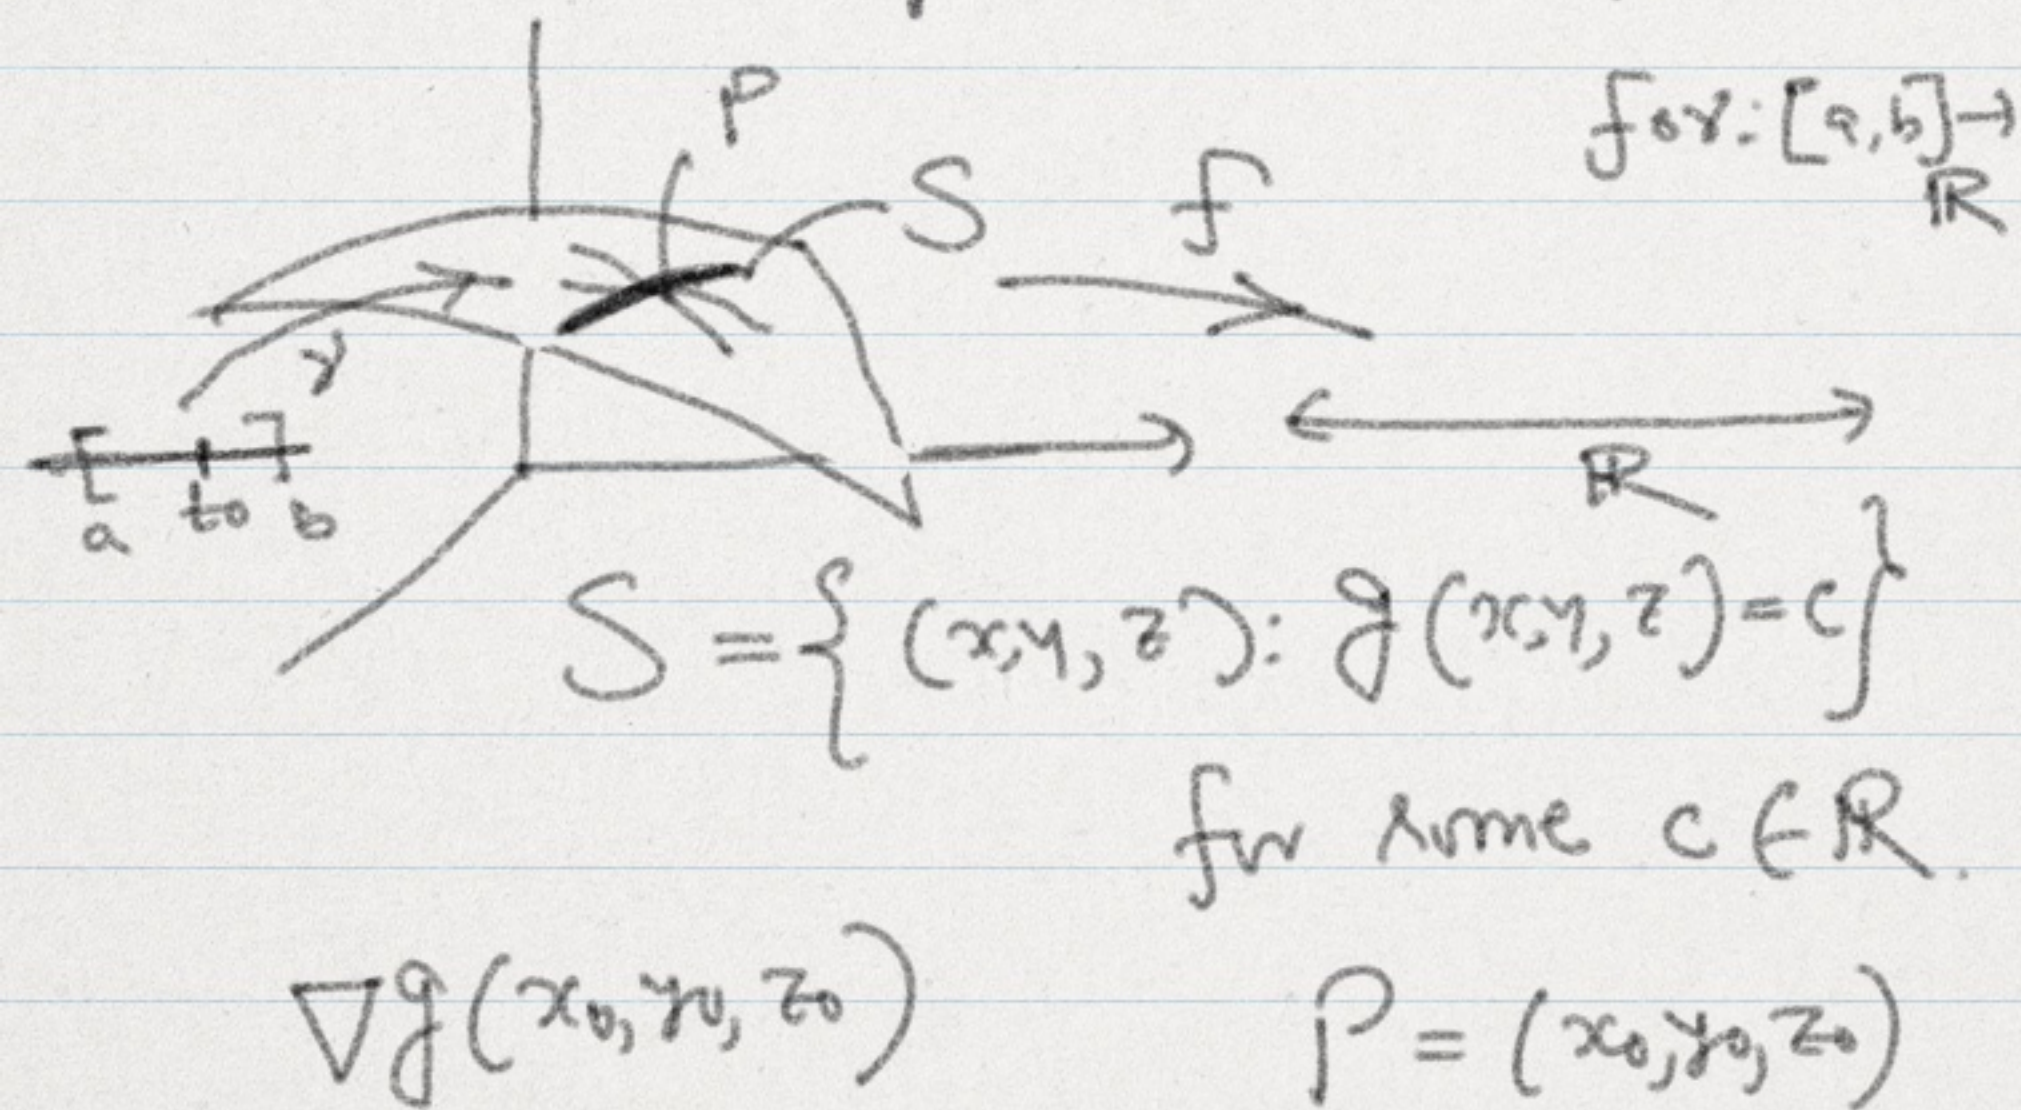 P
f∘γ: [a,b]→
ℝ
S
f
γ
[ ]
a t₀ b
ℝ
S = {(x,y,z): g(x,y,z)=c}
for some c ∈ ℝ.
∇g(x₀,y₀,z₀) P = (x₀,y₀,z₀)